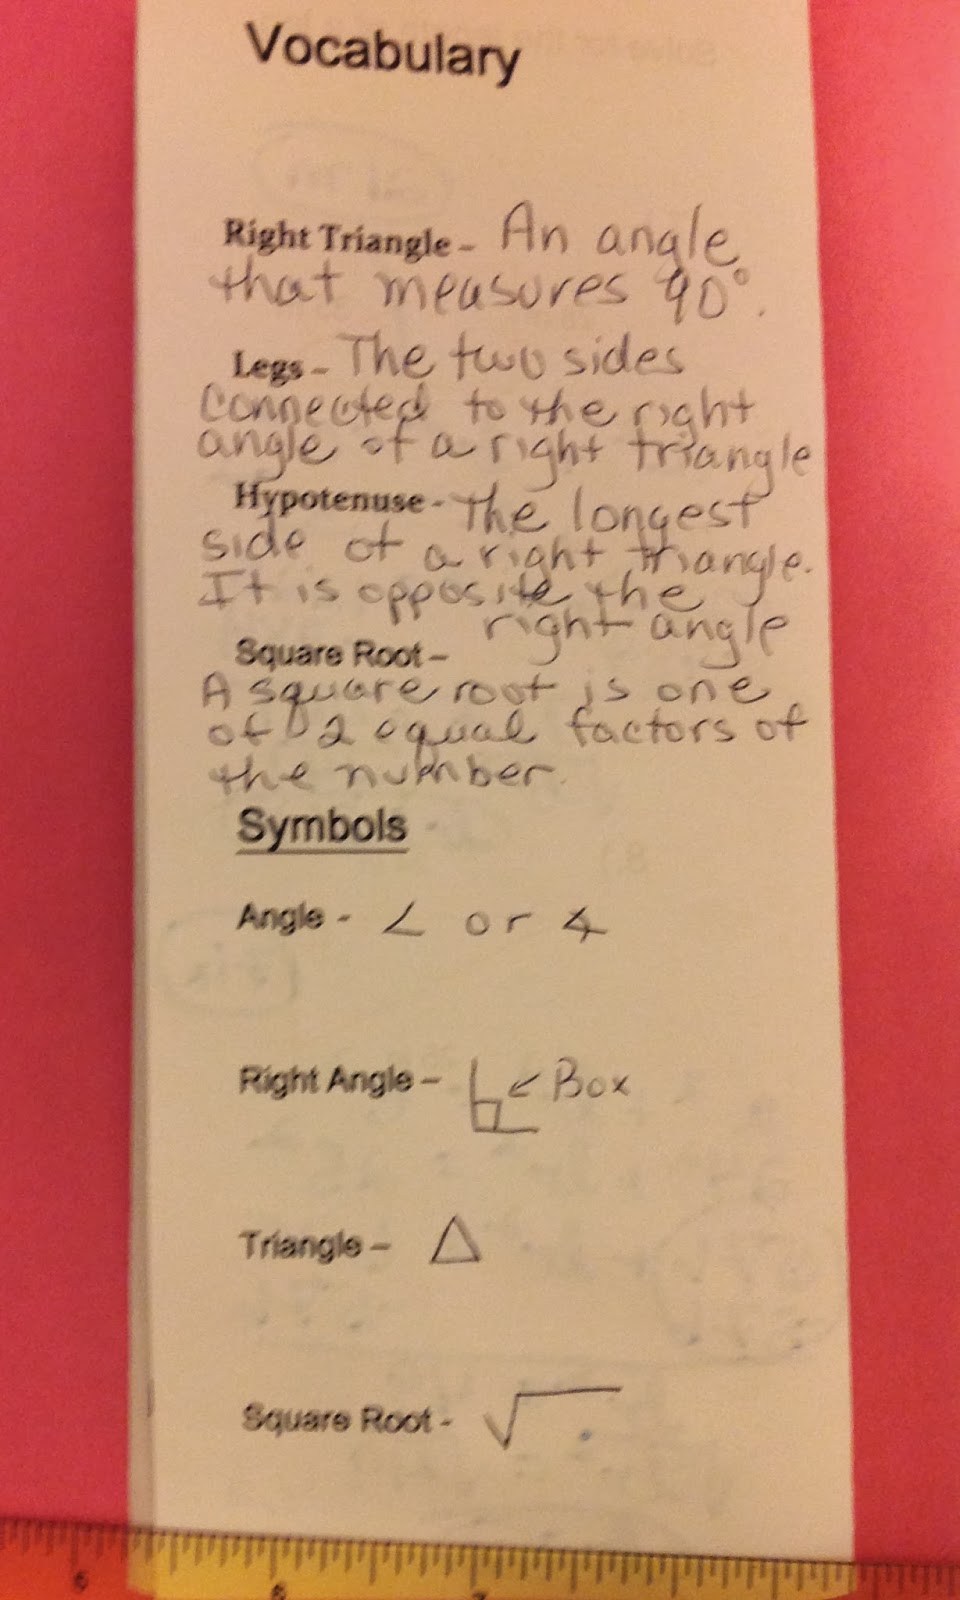 Vocabulary
Right Triangle - An angle
that measures 90°.
Legs - The two sides
Connected to the right
angle of a right triangle
Hypotenuse - The longest
side of a right triangle.
It is opposite the
right angle
Square Root -
A square root is one
of 2 equal factors of
the number.
Symbols
Angle - ∠ or ∡
Right Angle - ↙ Box
Triangle - △
Square Root - √
6 7